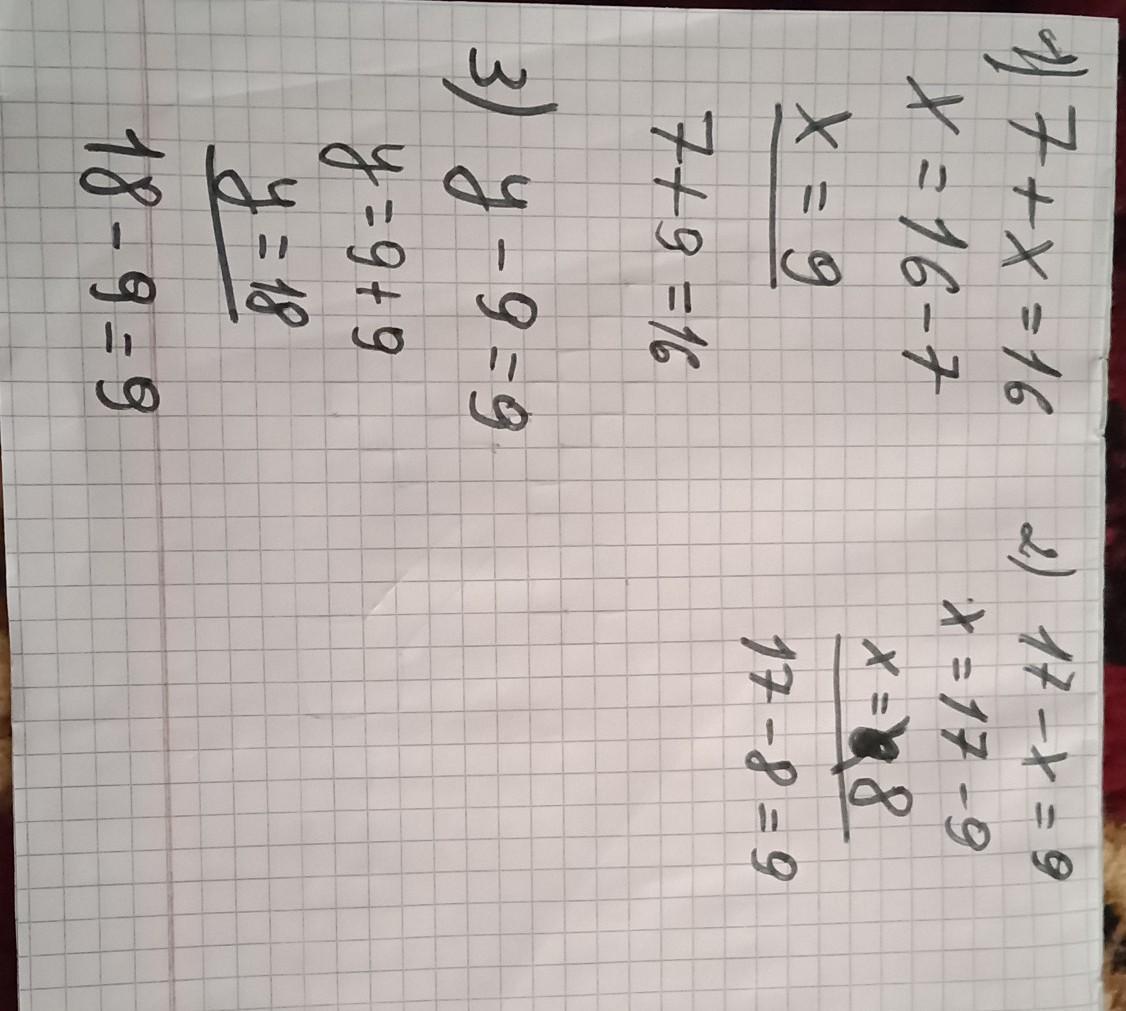 1) 7 + x = 16
x = 16 - 7
x = 9
7 + 9 = 16
2) 17 - x = 9
x = 17 - 9
x = 8
17 - 8 = 9
3) y - 9 = 9
y = 9 + 9
y = 18
18 - 9 = 9